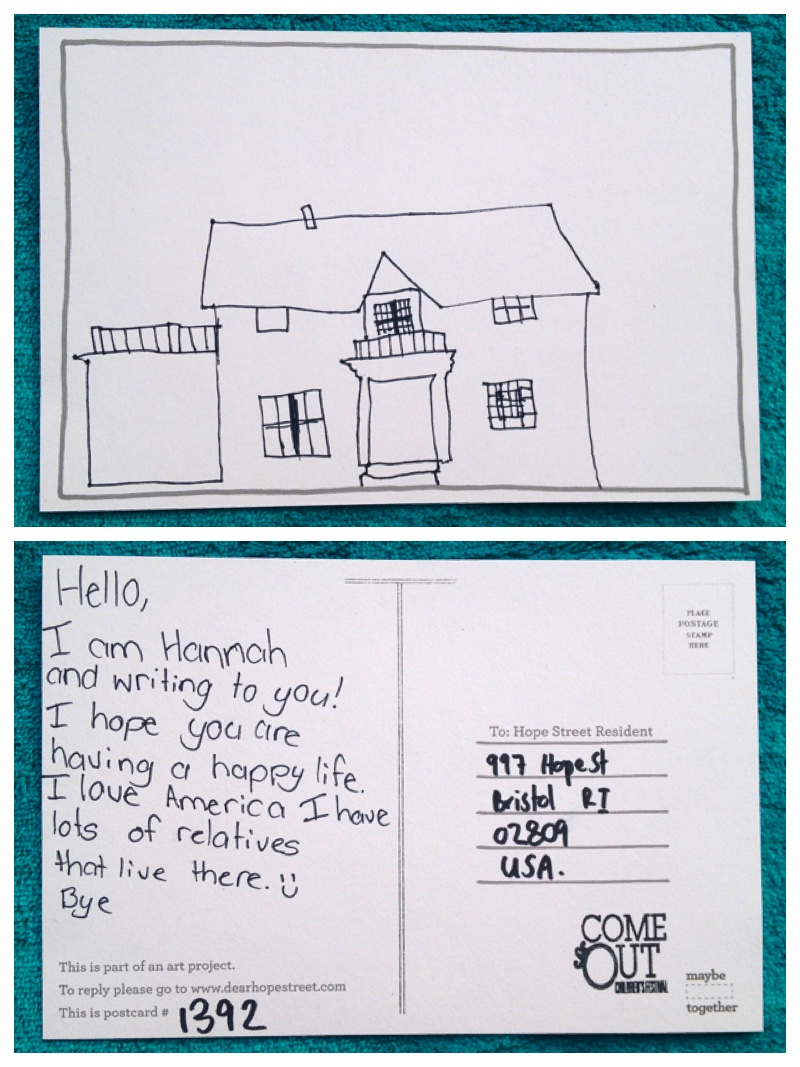 Hello,
I am Hannah
and writing to you!
I hope you are
having a happy life.
I love America I have
lots of relatives
that live there. :)
Bye
This is part of an art project.
To reply please go to www.dearhopestreet.com
This is postcard # 1392
PLACE
POSTAGE
STAMP
HERE
To: Hope Street Resident
997 Hope st
Bristol RI
02809
USA.
COME
OUT
CHILDREN'S FESTIVAL
maybe
together